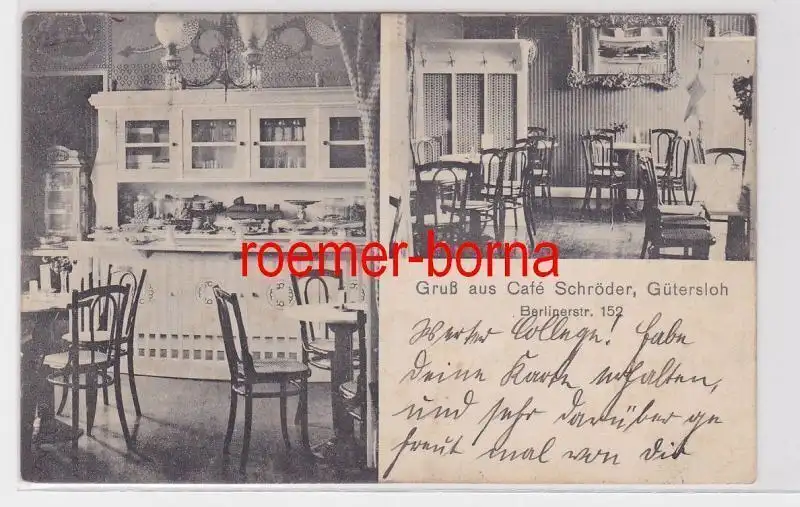 roemer-borna
Gruß aus Café Schröder, Gütersloh
Berlinerstr. 152
Werter College! habe
deine Karte erhalten,
und sehr darüber ge
freut mal von dir